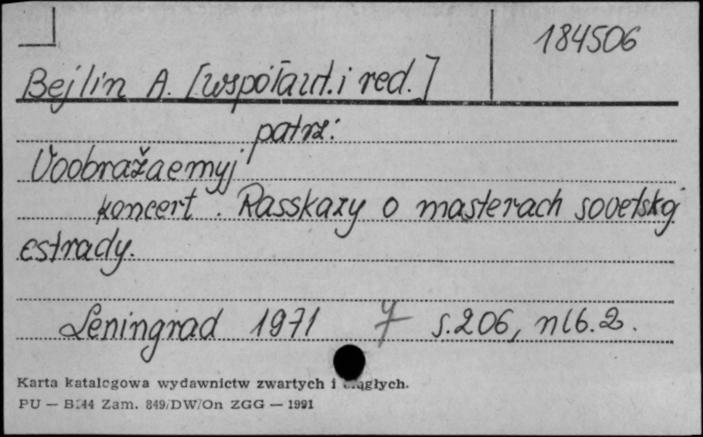 184506
Bejlin A. [współaut. i red.]
patrz:
Voobražaemyj
koncert. Rasskazy o masterach sovetskoj
estrady.
Leningrad 1971 s. 206, nlb. 2.
Karta katalogowa wydawnictw zwartych i ciągłych.
PU — B/44 Zam. 849/DW/On ZGG — 1991